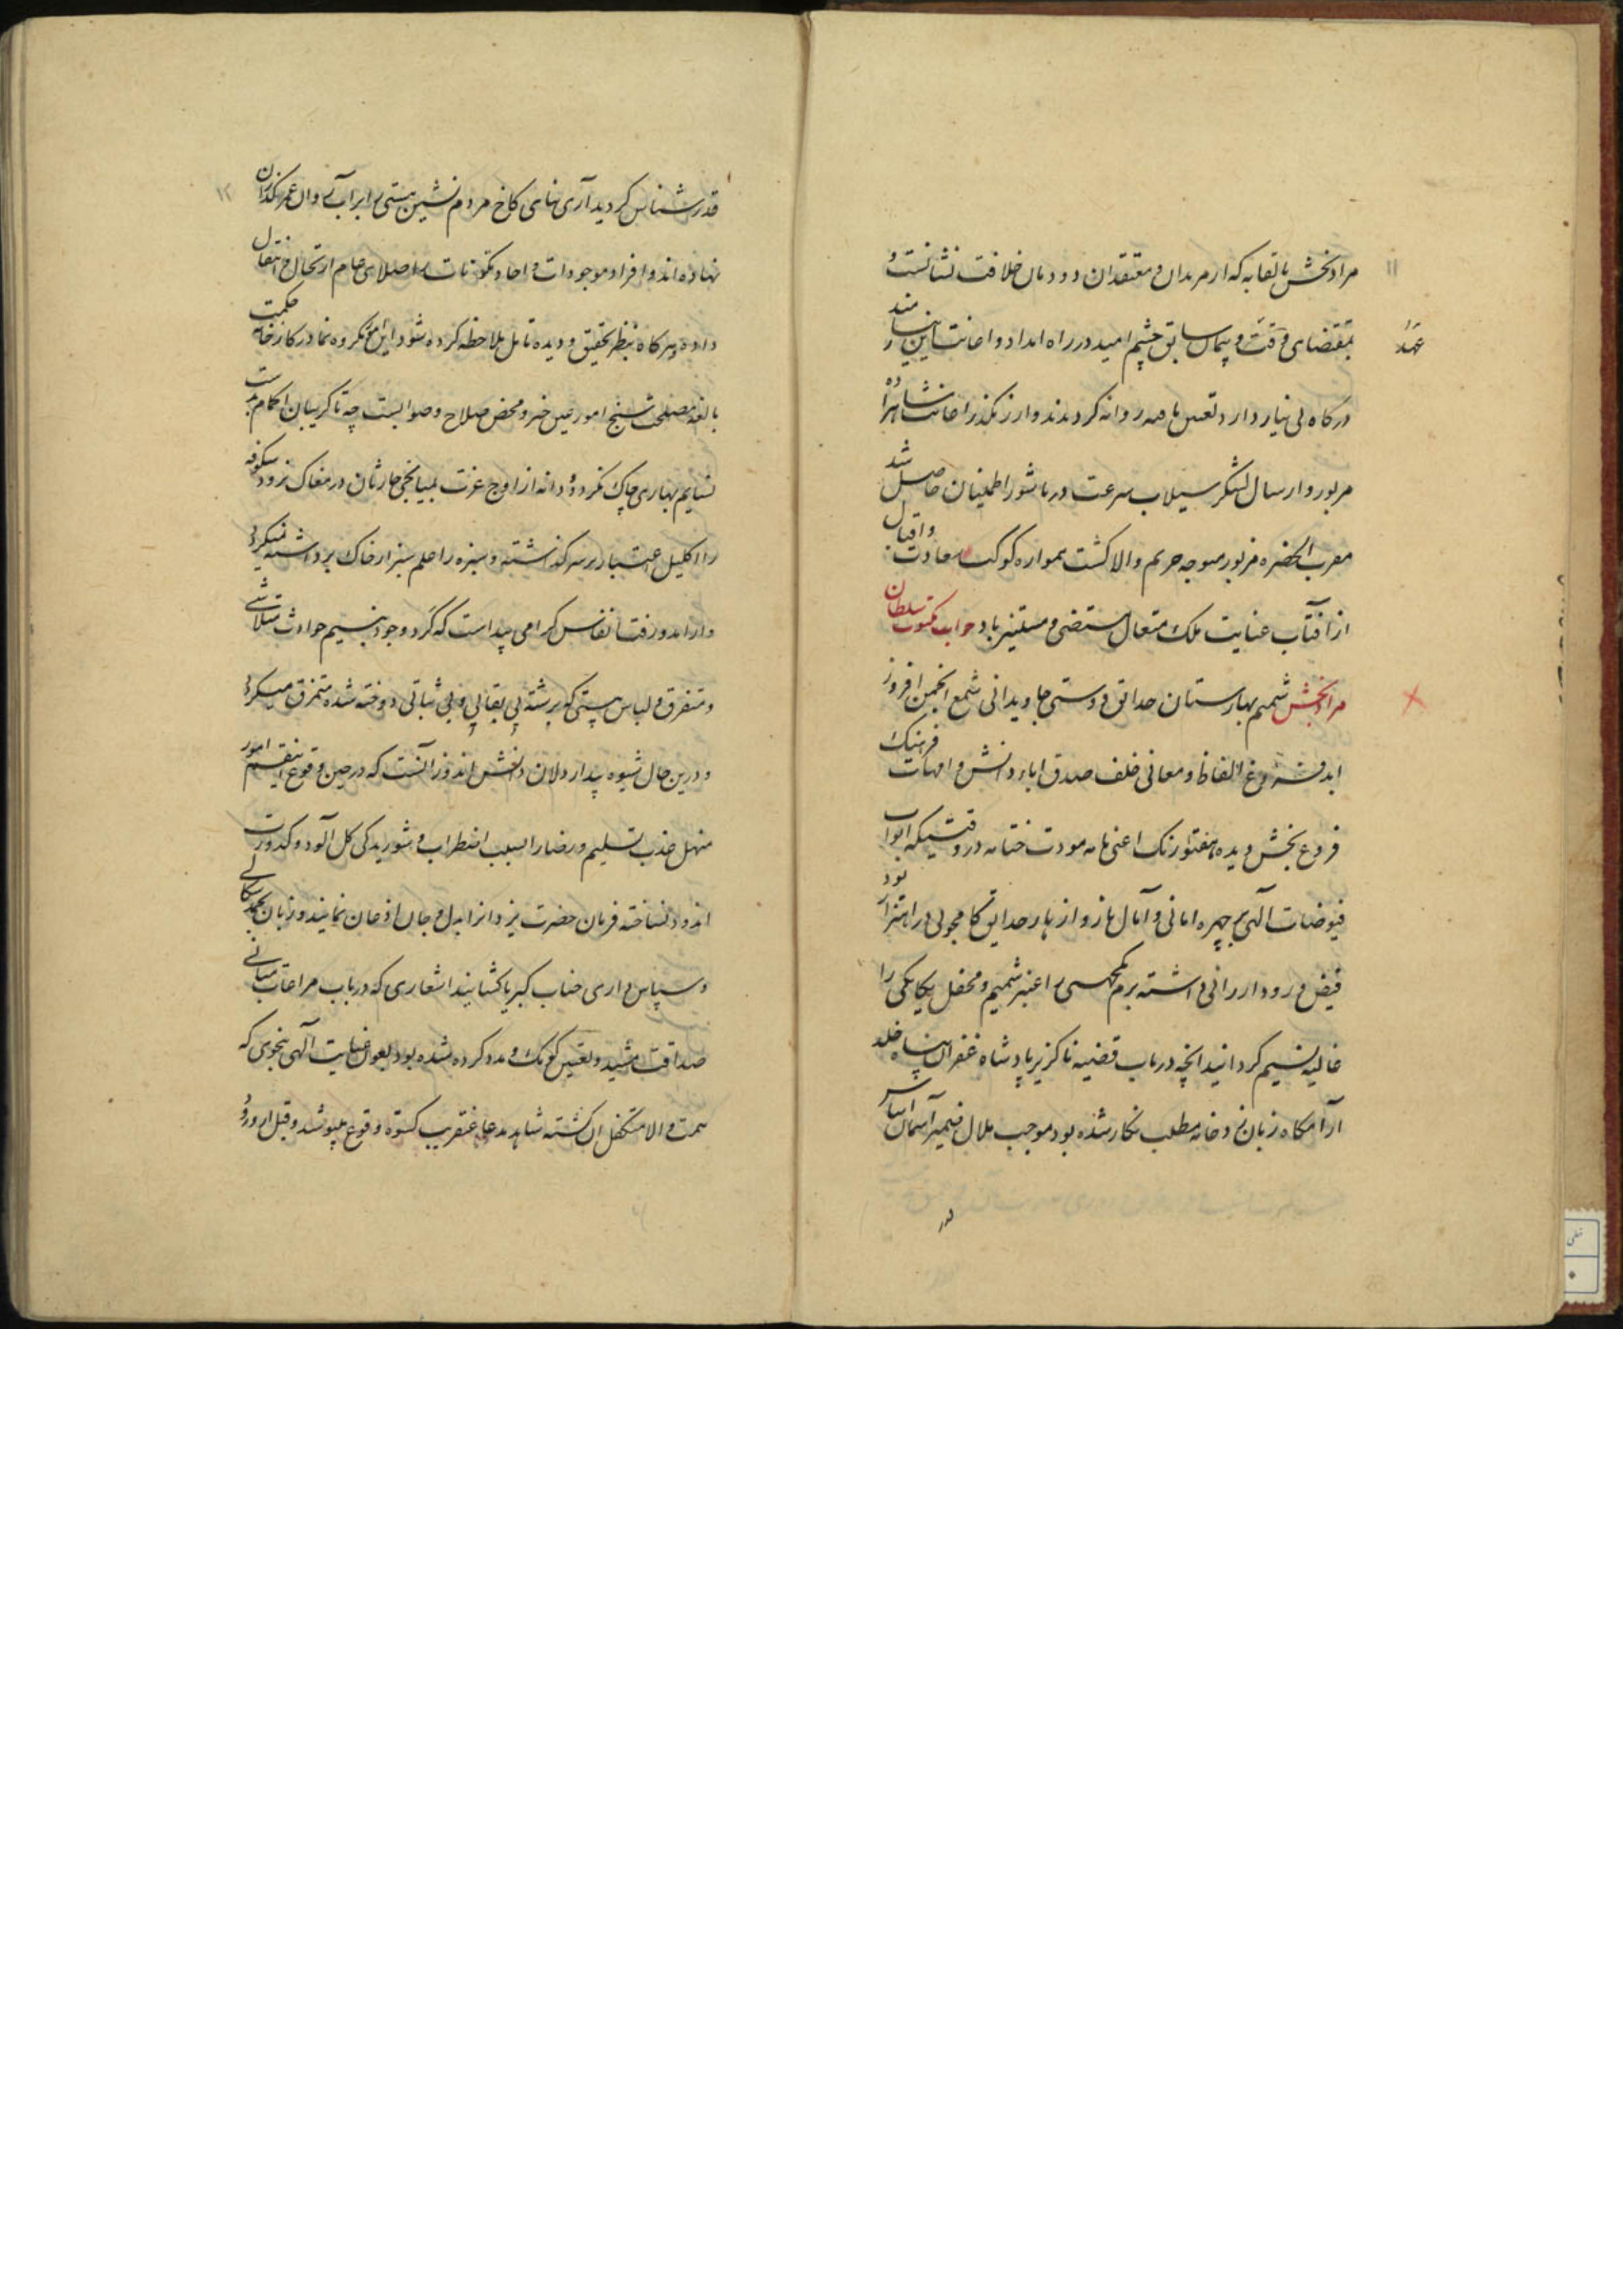 ۱۱
مرادبخش با تقابه که از مریدان و معتقدان دودمان خلافت نشانست و
بمقتضای وقت و پیمان سابق چشم امید در راه امداد و اعانت این نیازمند
عهد
درگاه بی نیاز دارد تعین نامه روانه کردیدند و از رکذر اعانت شاهزاده
مزبور و ارسال لشکر سیلاب سرعت دریا شور اطمینان حاصل شد
مقرب الحضره مزبور متوجه حریم والا کشت همواره کوکب سعادت و اقبال
از آفتاب عنایت ملک متعال مستضی و مستنیر باد جواب مکتوب سلطان
مرادبخش شمیم بهارستان حدائق دوستی جاویدانی شمع انجمن افروز
ابد فروغ الفاظ و معانی خلف صدق اباء دانش و امهات فرهنک
فروغ بخش دیده هفتورنک اعنی نامه مودت ختامه در وقتیکه ابواب
فیوضات آلهی بر چهره امانی و آمال باز و ازهار حدایق کامجوئی در اهتزاز بود
فیض ورود ارزانی داشته بزم یکجهتی را عنبر شمیم و محفل یکانکی را
غالیه نسیم کردانید انچه در باب قضیه ناکزیر پادشاه غفران پناه خلد
آرامکاه زبان زد خامه مطلب نکار شده بود موجب ملال ضمیر آسمان اساس
۱۲
قدرشناس کردید آری بنای کاخ مردم نشین هستی را بر آب روان عمر کذران
نهاده اند و افراد موجودات و احاد مکونات را صلای جام ارتحال و انتقال
داده و هرکاه بنظر تحقیق و دیده تامل ملاحظه کرده شود این امر مکروه نما در کارخانه حکمت
بالغه مصلحت سنج امور عین خیر و محض صلاح و صوابست چه تا کریبان اکمام بدست
نسایم بهاری چاک نکردد و دانه از اوج عزت بمیانجی حارثان در مغاک نرود شکوفه
را اکلیل اعتبار بر سر کذاشته و سبزه را علم سبز از خاک برداشته نمیکردد
و از آمد و رفت انفاس کرامی پیداست که کرد وجود بنسیم حوادث متلاشی
و متفرق و لباس هستی که برشته بی بقایی و بی ثباتی دوخته شده متمزق میکردد
و درین حال شیوه بیدار دلان دانش اندوز آنست که در حین وقوع اینقسم امور
منهل عذب تسلیم و رضا را بسبب اضطراب و شوریدکی کل آلود و کدورت
اندود نساخته فرمان حضرت یزدانرا بدل و جان اذعان نمایند و زبان بحمد سکالی
و سپاس داری جناب کبریا کشایند اشعاری که در باب مراعات مبانی
صداقت مشید و تعین کومک و مدد کرده شده بود بعون عنایت آلهی بنحوی که
همت والا متکفل ان کشته شاهد مدعا عنقریب کسوة وقوع میپوشد و قبل از ورود